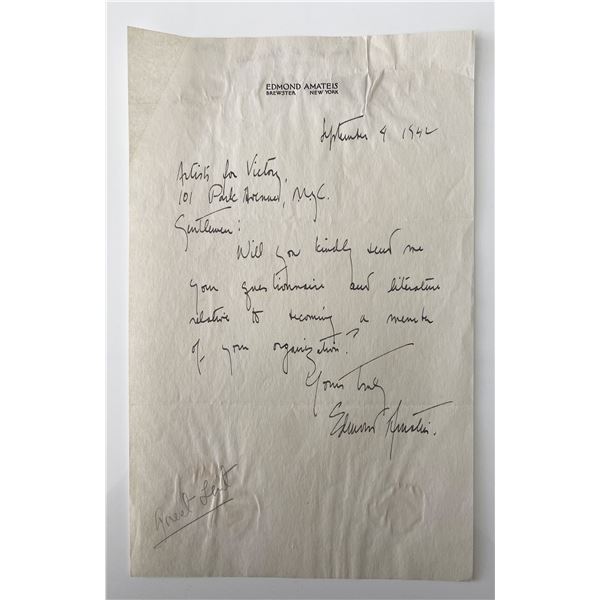 EDMOND AMATEIS
BREWSTER NEW YORK
September 4 1942
Artists for Victory,
101 Park Avenue, N.Y.C.
Gentlemen:
Will you kindly send me
your questionnaire and literature
relative to becoming a member
of your organization?
Yours truly
Edmond Amateis.
Quest Sent